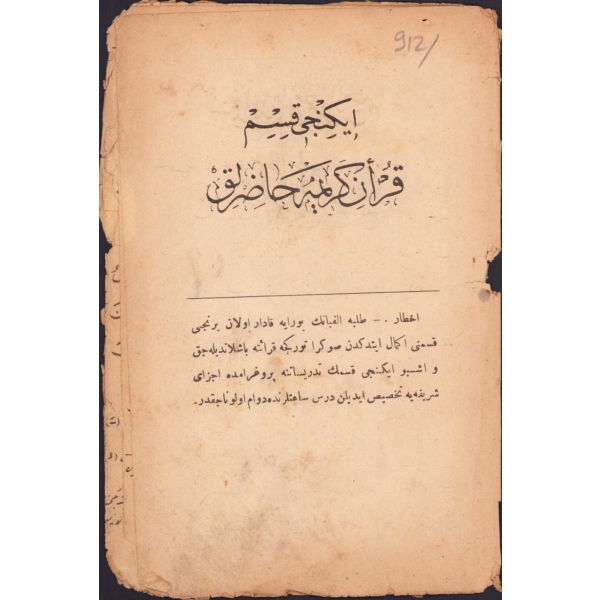 912/
ایكنجی قسم
قرأن كریمه حاضرلق
اخطار .— طلبه الفبانك بورایه قادار اولان برنجی
قسمنی اكمال ایتدكدن صوكرا توركجه قرائته باشلاندیله جق
و اشبو ایكنجی قسمك تدریساتنه پروغرامده اجزای
شریفه یه تخصیص ایدیلن درس ساعتلرنده دوام اولوناجقدر .